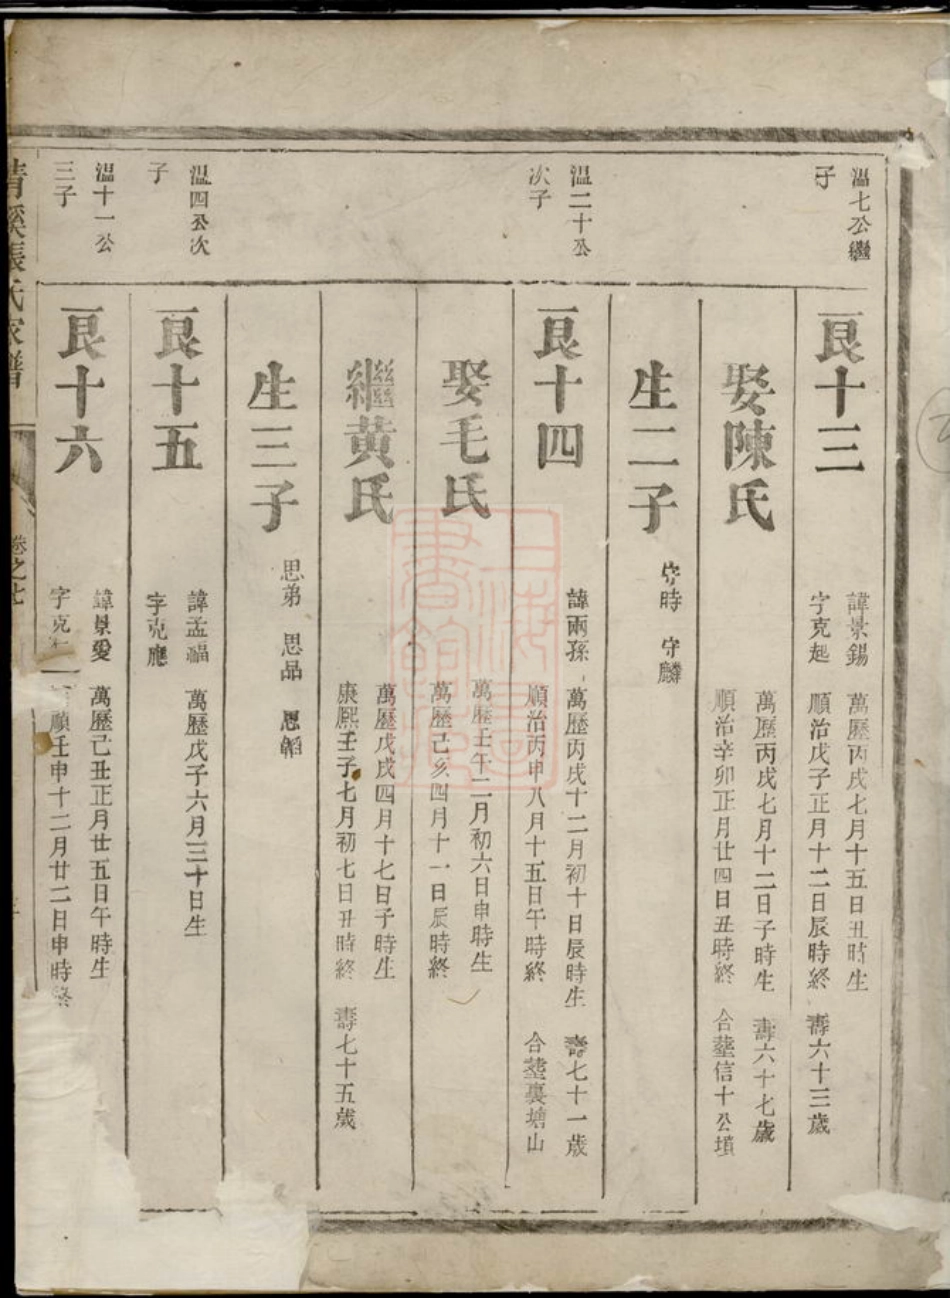 溫七公繼
子
艮十三
諱景錫 萬歷丙戌七月十五日丑時生
字克起 順治戊子正月十二日辰時終 壽六十三歲
娶陳氏
萬歷丙戌七月十二日子時生 壽六十七歲
順治辛卯正月廿四日丑時終 合塟信十公墳
生二子
守時 守麟
溫二十公
次子
艮十四
諱兩孫 萬歷丙戌十二月初十日辰時生 壽七十一歲
順治丙申八月十五日午時終 合塟裏塘山
娶毛氏
萬歷壬午二月初六日申時生
萬歷己亥四月十一日辰時終
繼黄氏
萬歷戊戌四月十七日子時生
康熙壬子七月初七日丑時終 壽七十五歲
生三子
思弟 思品 思韜
溫四公次
子
艮十五
諱孟福 萬歷戊子六月三十日生
字克應
溫十一公
三子
艮十六
諱景愛 萬歷己丑正月廿五日午時生
字克 順壬申十二月廿二日申時終
清溪張氏家譜 卷之七
上海圖書館藏